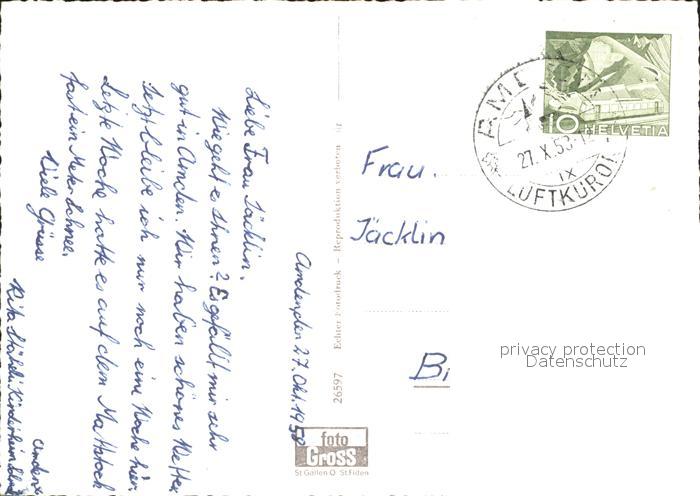 Amden den 27. Okt. 1953
Liebe Frau Jäcklin.
Wie geht es Ihnen? Es gefällt mir sehr
gut in Amden. Wir haben schönes Wetter
Jetzt bleibe ich nur noch eine Woche hier.
Letzte Woche hatte es auf dem Mattstock
fast ein Meter Schnee.
Viele Grüsse
Rita
Amden
26597 Echter Fotodruck – Reproduktion verboten
foto
Gross
St Gallen O St Fiden
HELVETIA
10
AMDEN
27.X.53
IX
LUFTKURORT
Frau.
Jäcklin
privacy protection
Datenschutz